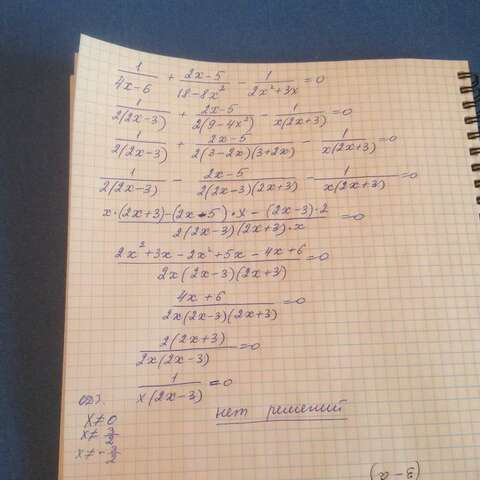 1/(4x-6) + (2x-5)/(18-8x²) - 1/(2x²+3x) = 0
1/(2(2x-3)) + (2x-5)/(2(9-4x²)) - 1/(x(2x+3)) = 0
1/(2(2x-3)) + (2x-5)/(2(3-2x)(3+2x)) - 1/(x(2x+3)) = 0
1/(2(2x-3)) - (2x-5)/(2(2x-3)(2x+3)) - 1/(x(2x+3)) = 0
(x·(2x+3)-(2x-5)·x-(2x-3)·2)/(2(2x-3)(2x+3)·x) = 0
(2x²+3x-2x²+5x-4x+6)/(2x(2x-3)(2x+3)) = 0
(4x+6)/(2x(2x-3)(2x+3)) = 0
2(2x+3)/(2x(2x-3)) = 0
1/(x(2x-3)) = 0
ОДЗ
x≠0
x≠3/2
x≠-3/2
нет решений
(3-a)